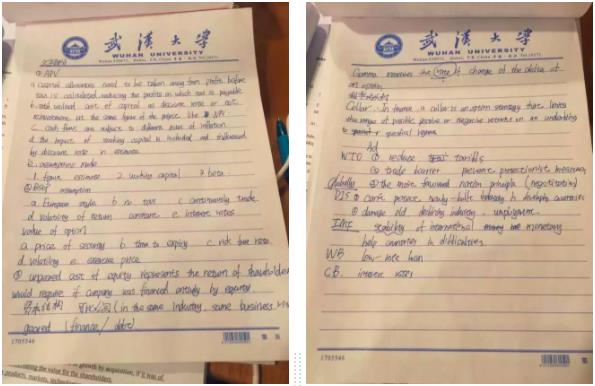 武漢大學
WUHAN UNIVERSITY
① APV
a. Capital allowances need to be taken away from profits before
tax is calculated, reducing the profits on which tax is payable
b. cost of capital as discount rate
c. Cash flows are subject to different rates of inflation
d. the impact of working capital is included and influenced
by discount rate
1. figure estimate 2. working capital 3. beta
assumption
a. European style b. no tax c. continuously trade
d. volatility of return constant e. interest rates
value of option
a. price of security b. time to expiry c. risk free rate
d. volatility e. exercise price
③ ungeared cost of equity represents the return of shareholders
would require if company was financed entirely by equity.
(in the same industry, same business
geared (finance / debt)
1705546
growth by acquisition, if it was of
creating the value for the shareholders.
products, markets,
武漢大學
WUHAN UNIVERSITY
Gamma measures the change of the delta of
an option
Collar: In finance, a collar is an option strategy that limits
the range of possible positive or negative returns on an underlying
to a specific range
WTO ① reduce tariffs
② trade barrier prevent protectionist measures
globally ③ the most favoured nation principle (negotiation)
newly-built industry in developing countries
② damage old, declining industry, unemployment
IMF stability of international monetary
help countries in difficulties
WB low-rate loan
CB. interest rates
1705546